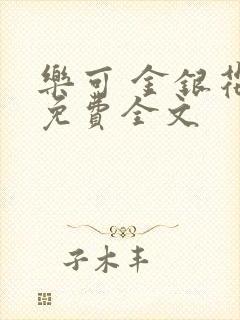 樂可 金銀花
免費全文
子木丰